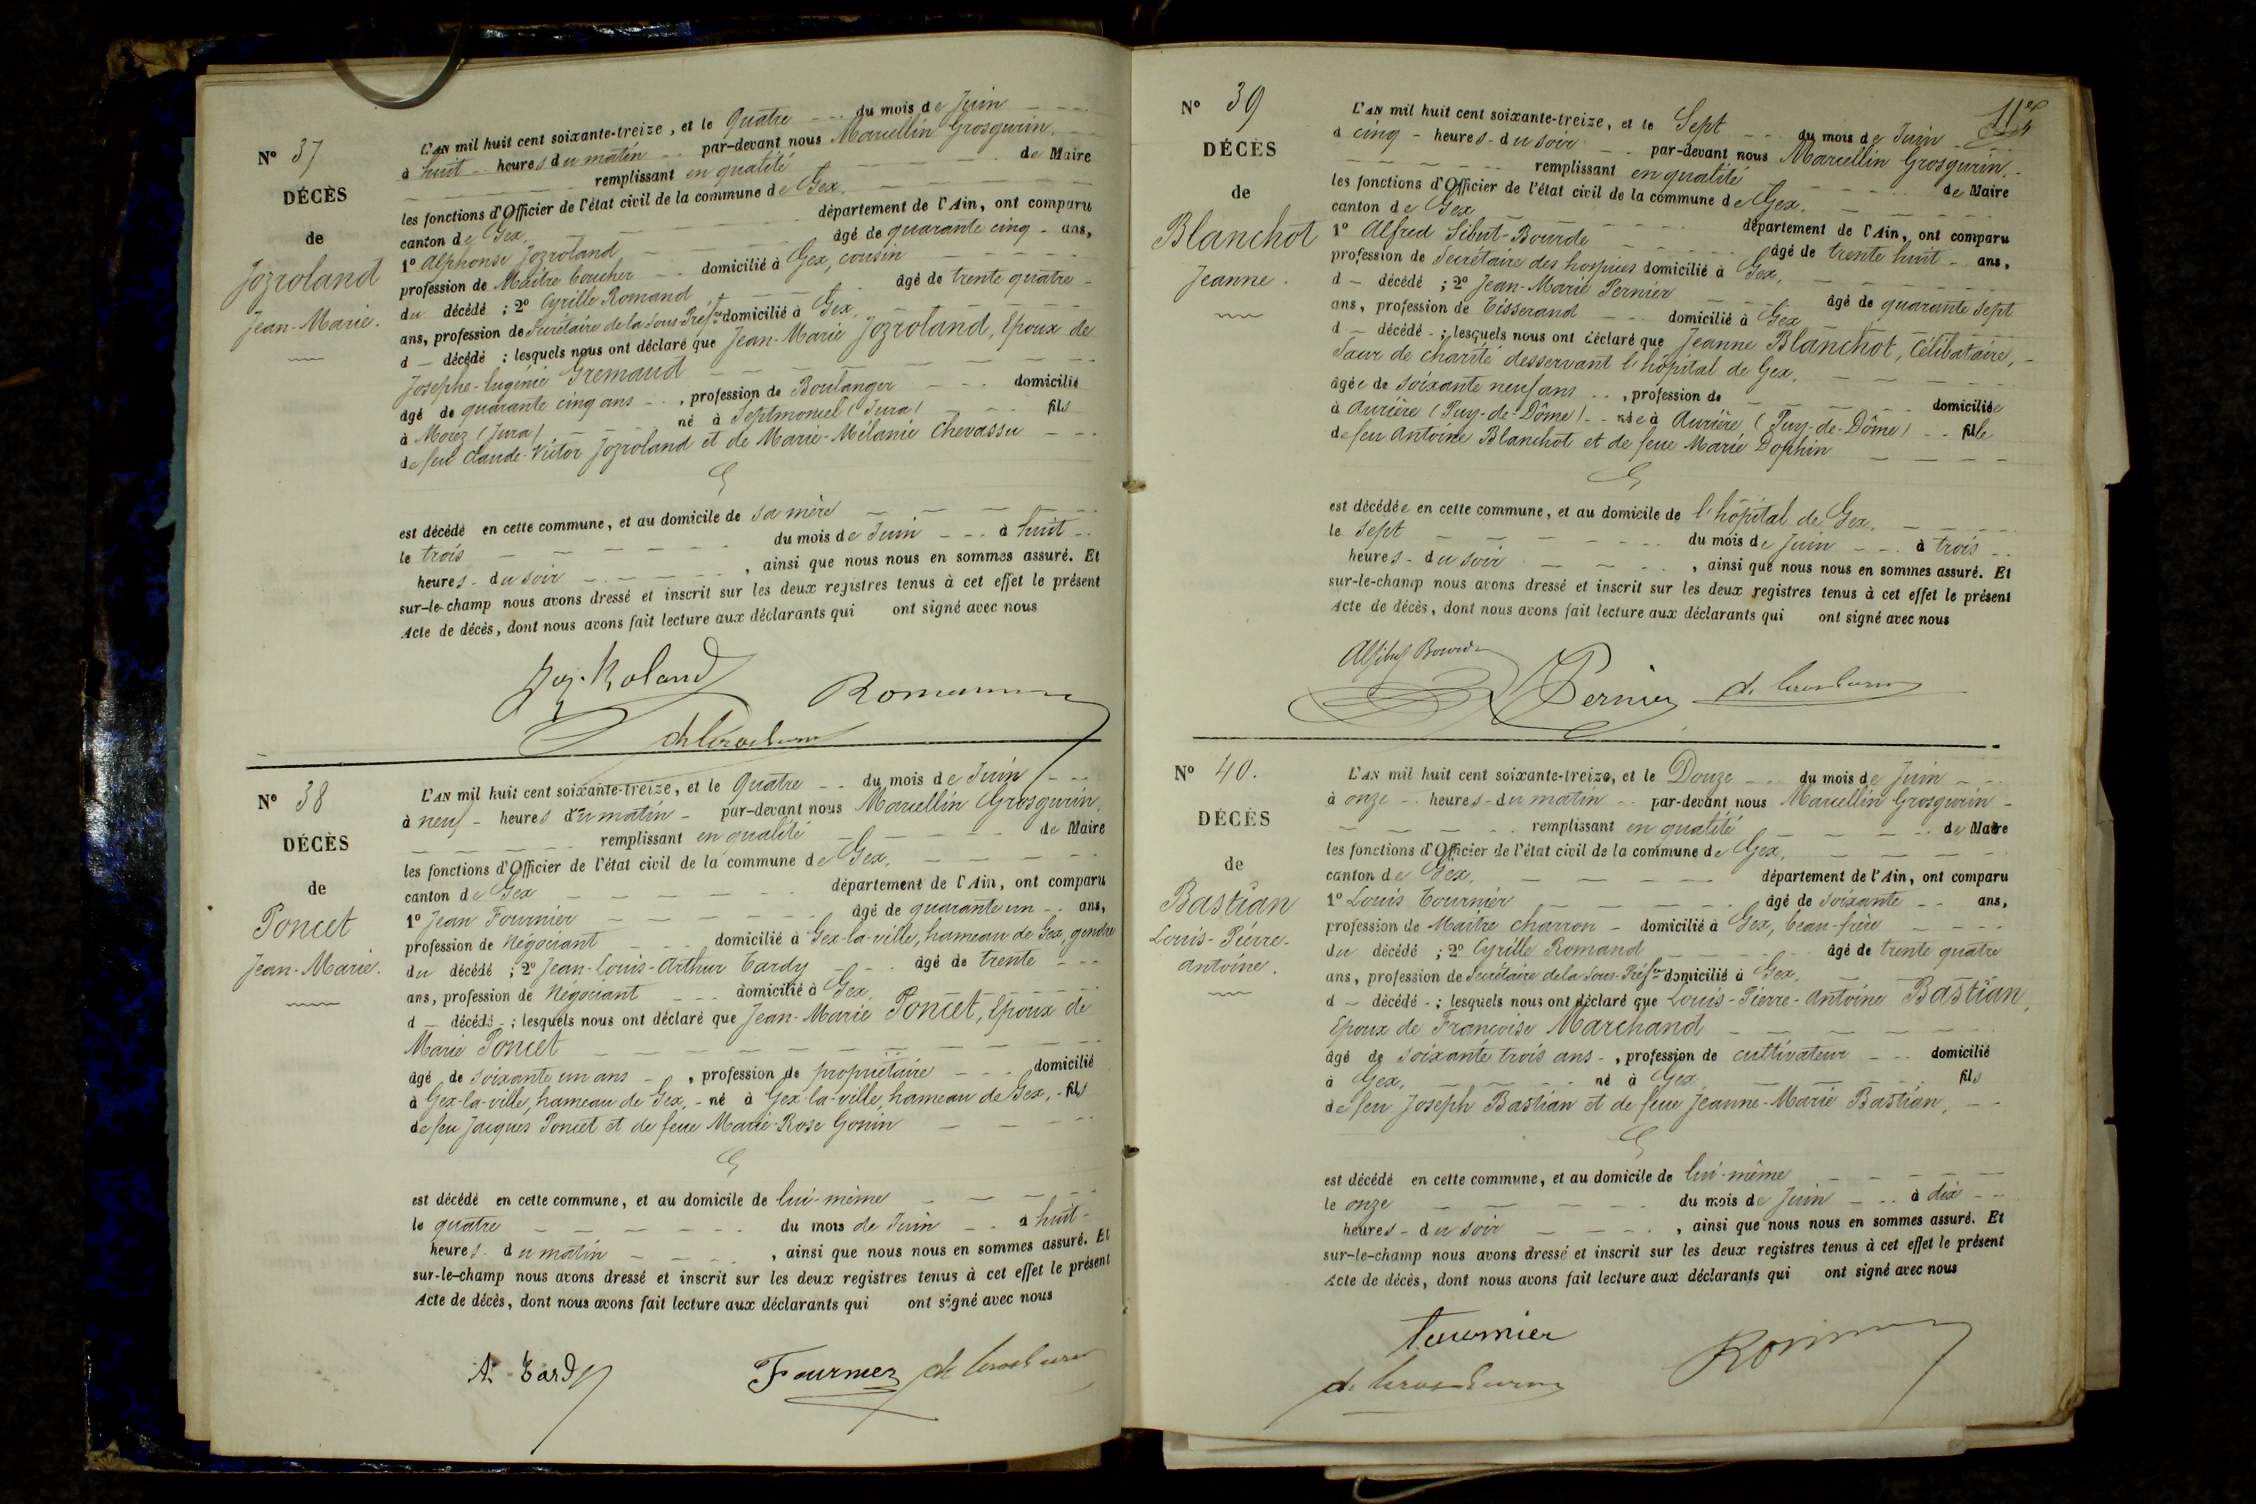 N° 37
DÉCÈS
de
Jozroland
Jean-Marie.
L'AN mil huit cent soixante-treize, et le Quatre du mois de Juin
à huit heures du matin par-devant nous Marcellin Grosgurin.
remplissant en qualité de Maire
les fonctions d'Officier de l'état civil de la commune de Gex.
canton de Gex. département de l'Ain, ont comparu
1° Alphonse Jozroland âgé de quarante cinq ans,
profession de Maître Boucher domicilié à Gex, cousin
du décédé ; 2° Cyrille Romand âgé de trente quatre
ans, profession de Secrétaire de la Sous-Préfre domicilié à Gex.
d décédé ; lesquels nous ont déclaré que Jean-Marie Jozroland, Epoux de
Josephe-Eugénie Gremaud
âgé de quarante cinq ans, profession de Boulanger domicilié
à Morez (Jura) né à Septmoncel (Jura) fils
de feu Claude-Victor Jozroland et de Marie-Mélanie Chevassu
est décédé en cette commune, et au domicile de sa mère
le trois du mois de Juin à huit
heures du soir, ainsi que nous nous en sommes assuré. Et
sur-le-champ nous avons dressé et inscrit sur les deux registres tenus à cet effet le présent
Acte de décès, dont nous avons fait lecture aux déclarants qui ont signé avec nous
Joz-Roland
Romand
N° 38
DÉCÈS
de
Poncet
Jean-Marie.
L'AN mil huit cent soixante-treize, et le Quatre du mois de Juin
à neuf heures du matin par-devant nous Marcellin Grosgurin.
remplissant en qualité de Maire
les fonctions d'Officier de l'état civil de la commune de Gex.
canton de Gex département de l'Ain, ont comparu
1° Jean Fournier âgé de quarante un ans,
profession de Négociant domicilié à Gex-la-ville, hameau de Gex, gendre
du décédé ; 2° Jean-Louis-Arthur Tardy âgé de trente
ans, profession de Négociant domicilié à Gex.
d décédé ; lesquels nous ont déclaré que Jean-Marie Poncet, Epoux de
Marie Poncet
âgé de soixante un ans, profession de propriétaire domicilié
à Gex-la-ville, hameau de Gex, né à Gex-la-ville, hameau de Gex, fils
de feu Jacques Poncet et de feue Marie-Rose Gonin
est décédé en cette commune, et au domicile de lui-même
le quatre du mois de Juin à huit
heures du matin, ainsi que nous nous en sommes assuré. Et
sur-le-champ nous avons dressé et inscrit sur les deux registres tenus à cet effet le présent
Acte de décès, dont nous avons fait lecture aux déclarants qui ont signé avec nous
A. Tardy
Fournier
N° 39
DÉCÈS
de
Blanchot
Jeanne.
L'AN mil huit cent soixante-treize, et le Sept du mois de Juin
à cinq heures du soir par-devant nous Marcellin Grosgurin.
remplissant en qualité de Maire
les fonctions d'Officier de l'état civil de la commune de Gex.
canton de Gex département de l'Ain, ont comparu
1° Alfred Sibut-Bourde âgé de trente huit ans,
profession de Secrétaire des hospices domicilié à Gex.
d décédé ; 2° Jean-Marie Pernier âgé de quarante sept
ans, profession de Tisserand domicilié à Gex
d décédé ; lesquels nous ont déclaré que Jeanne Blanchot, Célibataire,
Sœur de charité desservant l'hôpital de Gex.
âgée de soixante neuf ans, profession de domiciliée
à Aurière (Puy-de-Dôme) née à Aurière (Puy-de-Dôme) fille
de feu Antoine Blanchot et de feue Marie Dophin
est décédée en cette commune, et au domicile de l'hôpital de Gex.
le sept du mois de Juin à trois
heures du soir, ainsi que nous nous en sommes assuré. Et
sur-le-champ nous avons dressé et inscrit sur les deux registres tenus à cet effet le présent
Acte de décès, dont nous avons fait lecture aux déclarants qui ont signé avec nous
Pernier
N° 40.
DÉCÈS
de
Bastian
Louis-Pierre-
Antoine.
L'AN mil huit cent soixante-treize, et le Douze du mois de Juin
à onze heures du matin par-devant nous Marcellin Grosgurin
remplissant en qualité de Maire
les fonctions d'Officier de l'état civil de la commune de Gex.
canton de Gex. département de l'Ain, ont comparu
1° Louis Tournier âgé de soixante ans,
profession de Maître charron domicilié à Gex, beau-frère
du décédé ; 2° Cyrille Romand âgé de trente quatre
ans, profession de Secrétaire de la Sous-Préfre domicilié à Gex.
d décédé ; lesquels nous ont déclaré que Louis-Pierre-Antoine Bastian,
Epoux de Françoise Marchand
âgé de soixante trois ans, profession de cultivateur domicilié
à Gex, né à Gex fils
de feu Joseph Bastian et de feue Jeanne-Marie Bastian,
est décédé en cette commune, et au domicile de lui-même
le onze du mois de Juin à dix
heures du soir, ainsi que nous nous en sommes assuré. Et
sur-le-champ nous avons dressé et inscrit sur les deux registres tenus à cet effet le présent
Acte de décès, dont nous avons fait lecture aux déclarants qui ont signé avec nous
Tournier
Romand